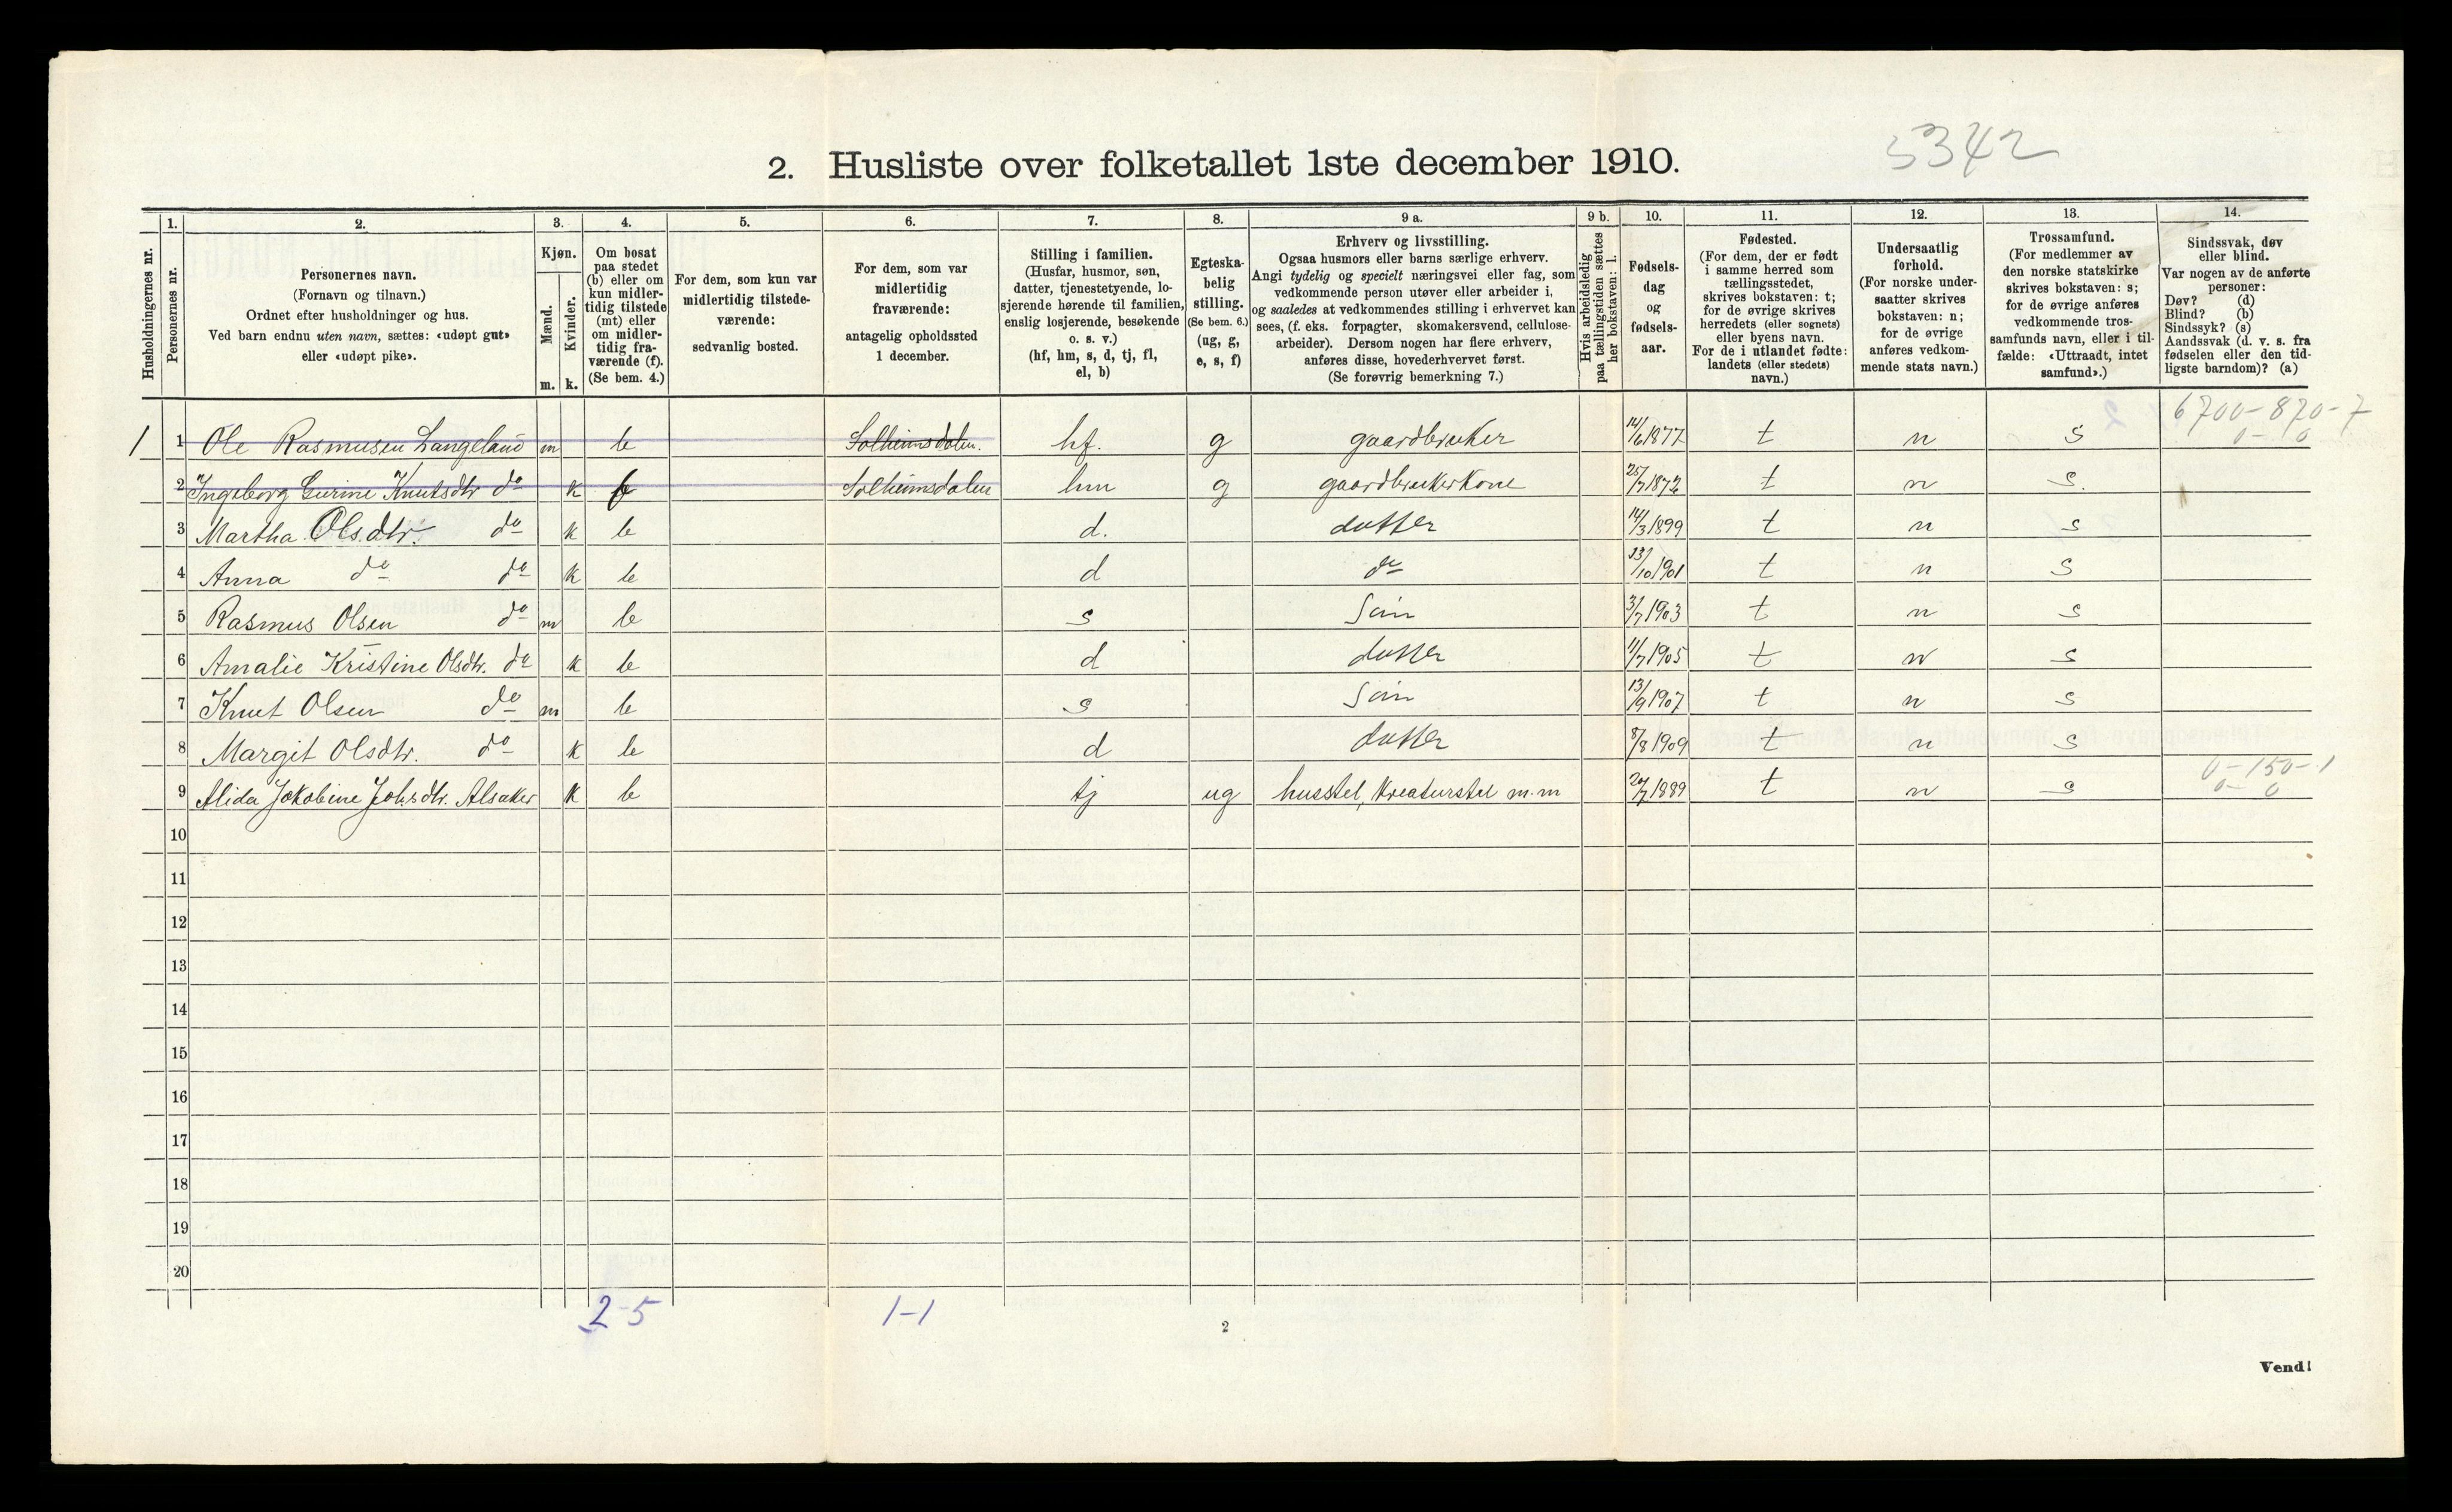 5342
2. Husliste over folketallet 1ste december 1910.
Husholdningernes nr.
1.
Personernes nr.
2.
Personernes navn.
(Fornavn og tilnavn.)
Ordnet efter husholdninger og hus.
Ved barn endnu uten navn, sættes: «udøpt gut»
eller «udøpt pike».
3.
Kjøn.
Mænd.
m.
Kvinder.
k.
4.
Om bosat
paa stedet
(b) eller om
kun midler-
tidig tilstede
(mt) eller
om midler-
tidig fra-
værende (f).
(Se bem. 4.)
5.
For dem, som kun var
midlertidig tilstede-
værende:
sedvanlig bosted.
6.
For dem, som var
midlertidig
fraværende:
antagelig opholdssted
1 december.
7.
Stilling i familien.
(Husfar, husmor, søn,
datter, tjenestetyende, lo-
sjerende hørende til familien,
enslig losjerende, besøkende
o. s. v.)
(hf, hm, s, d, tj, fl,
el, b)
8.
Egteska-
belig
stilling.
(Se bem. 6.)
(ug, g,
e, s, f)
9 a.
Erhverv og livsstilling.
Ogsaa husmors eller barns særlige erhverv.
Angi tydelig og specielt næringsvei eller fag, som
vedkommende person utøver eller arbeider i,
og saaledes at vedkommendes stilling i erhvervet kan
sees, (f. eks. forpagter, skomakersvend, cellulose-
arbeider). Dersom nogen har flere erhverv,
anføres disse, hovederhvervet først.
(Se forøvrig bemerkning 7.)
9 b.
Hvis arbeidsledig
paa tællingstiden sættes
her bokstaven: l.
10.
Fødsels-
dag
og
fødsels-
aar.
11.
Fødested.
(For dem, der er født
i samme herred som
tællingsstedet,
skrives bokstaven: t;
for de øvrige skrives
herredets (eller sognets)
eller byens navn.
For de i utlandet fødte:
landets (eller stedets)
navn.)
12.
Undersaatlig
forhold.
(For norske under-
saatter skrives
bokstaven: n;
for de øvrige
anføres vedkom-
mende stats navn.)
13.
Trossamfund.
(For medlemmer av
den norske statskirke
skrives bokstaven: s;
for de øvrige anføres
vedkommende tros-
samfunds navn, eller i til-
fælde: «Uttraadt, intet
samfund».)
14.
Sindssvak, døv
eller blind.
Var nogen av de anførte
personer:
Døv? (d)
Blind? (b)
Sindssyk? (s)
Aandssvak (d. v. s. fra
fødselen eller den tid-
ligste barndom)? (a)
6700-820-7
0- 0
1 1 Ole Rasmusen Langeland m b Solheimsdalen. hf. g gaardbruker 14/6 1877 t n s
2 Ingeborg Gurine Knutsdtr do k f Solheimsdalen hm g gaardbrukerkone 25/7 1872 t n s.
3 Martha Olsdtr. do k b d. datter 14/3 1899 t n s
4 Anna do do k b d do 23/10 1901 t n s
5 Rasmus Olsen do m b s Søn 3/7 1903 t n s
6 Amalie Kristine Olsdtr. do k b d datter 11/7 1905 t n s
7 Knut Olsen do m b s Søn 13/9 1907 t n s
8 Margit Olsdtr. do k b d datter 8/8 1909 t n s
9 Alida Jakobine Johsdtr. Alsaker k b tj ug husstel, Kreaturstel m.m 20/7 1889 t n s 0-150-1
0- 0
10
11
12
13
14
15
16
17
18
19
20
2-5 1-1
2
Vend!